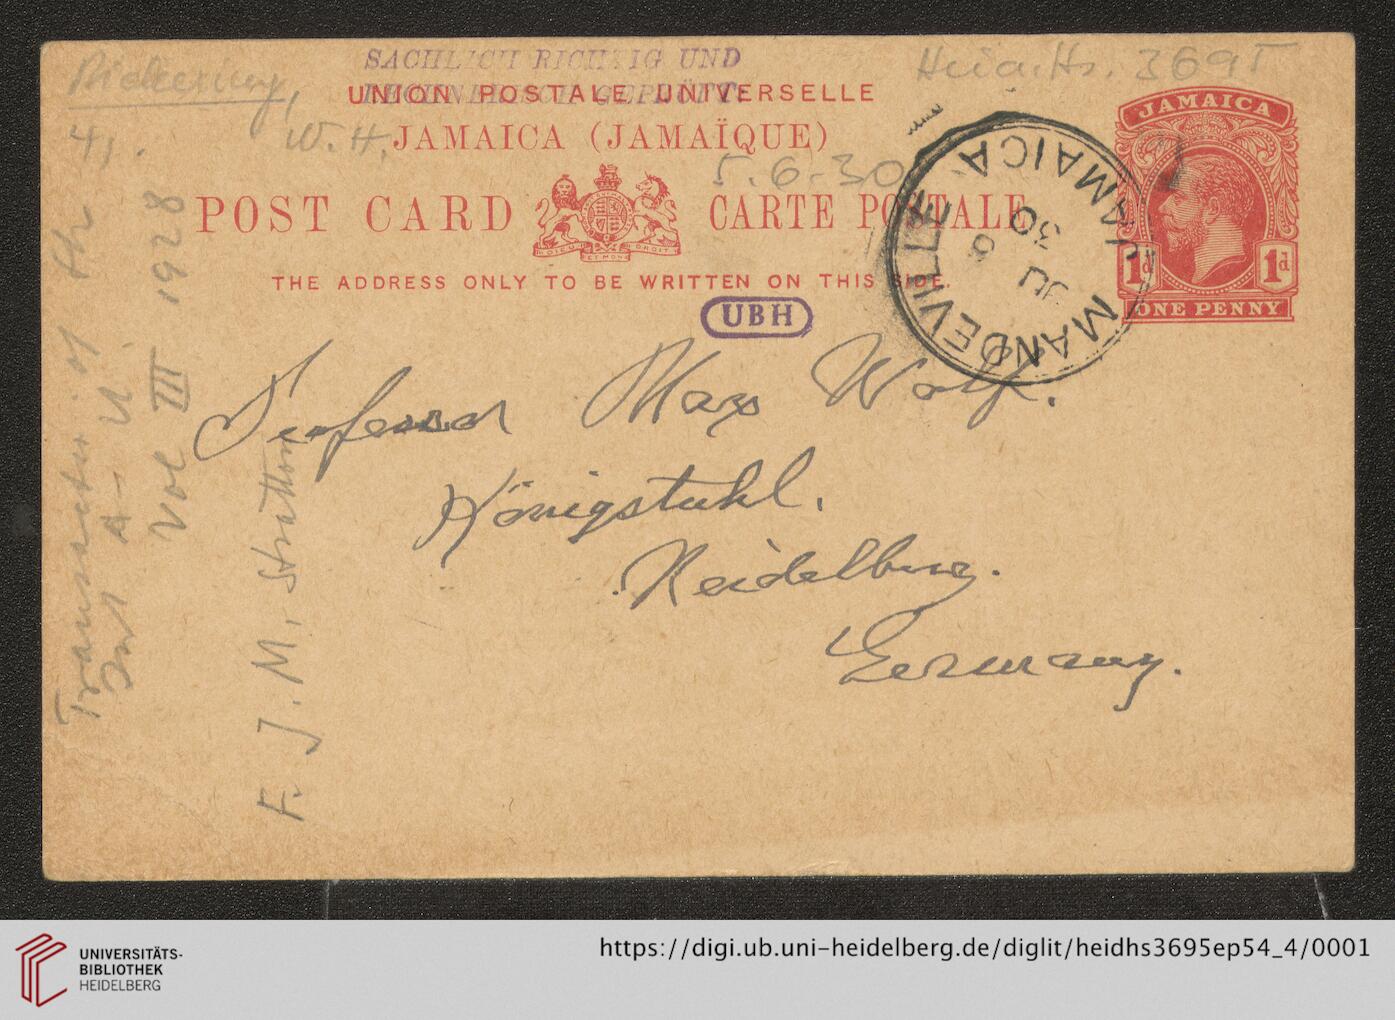 SACHLICH RICHTIG UND
Heid. Hs. 3695
Pickering,
UNION POSTALE UNIVERSELLE
W. H.
JAMAICA (JAMAÏQUE)
5.6.30
POST CARD
CARTE POSTALE
DIEU ET MON DROIT
THE ADDRESS ONLY TO BE WRITTEN ON THIS SIDE.
JAMAICA
1d 1d
ONE PENNY
MANDEVILLE JAMAICA
JU 6
30
UBH
Professor Max Wolf.
Königstuhl.
Heidelberg.
Germany.
Transactions of th
Int A- U
Vol III 1928
F. J. M. Stratton
UNIVERSITÄTS-
BIBLIOTHEK
HEIDELBERG
https://digi.ub.uni-heidelberg.de/diglit/heidhs3695ep54_4/0001